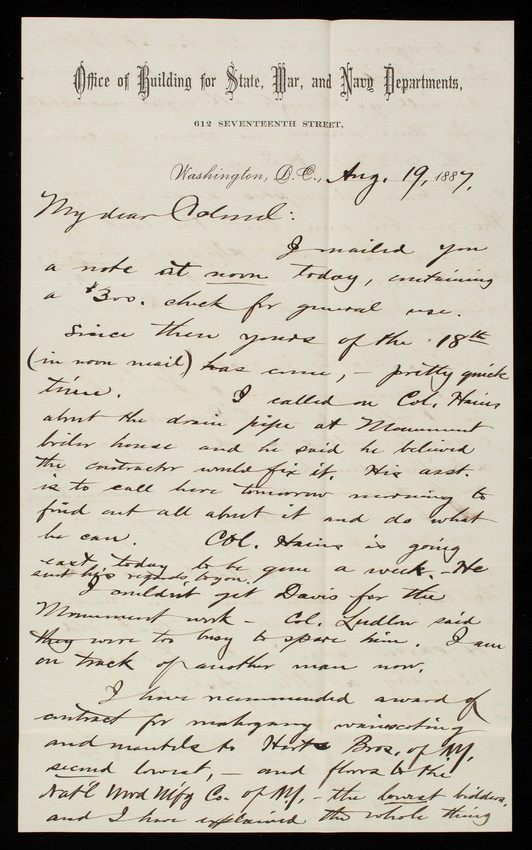 Office of Building for State, War, and Navy Departments,
612 SEVENTEENTH STREET,
Washington, D.C., Aug. 19, 1887.
My dear Colonel:
I mailed you
a note at noon today, containing
a $300. check for general use.
Since then yours of the 18th
(in noon mail) has come, – pretty quick
time. I called on Col. Hains
about the drain pipe at Monument
boiler house and he said he believed
the contractor would fix it. His asst.
is to call here tomorrow morning to
find out all about it and do what
he can. Col. Hains is going
east today to be gone a week. – He
sent his regards to you.
I couldn't get Davis for the
Monument work – Col. Ludlow said
they were too busy to spare him. I am
on track of another man now.
I have recommended award of
contract for mahogany wainscoting
and mantels to Herts Bros. of NY,
second lowest, – and floors to the
Nat'l Wood M'f'g Co. of NY, – the lowest bidders,
and I have explained the whole thing